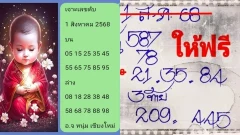 เจาะเลขดับ
1 สิงหาคม 2568
บน
05 15 25 35 45
55 65 75 85 95
ล่าง
08 18 28 38 48
58 68 78 88 98
อ.จ หนุ่ม เชียงใหม่
1 ส.ค 68
587
78
ให้ฟรี
21. 35. 84
3 ตัว
209. 445